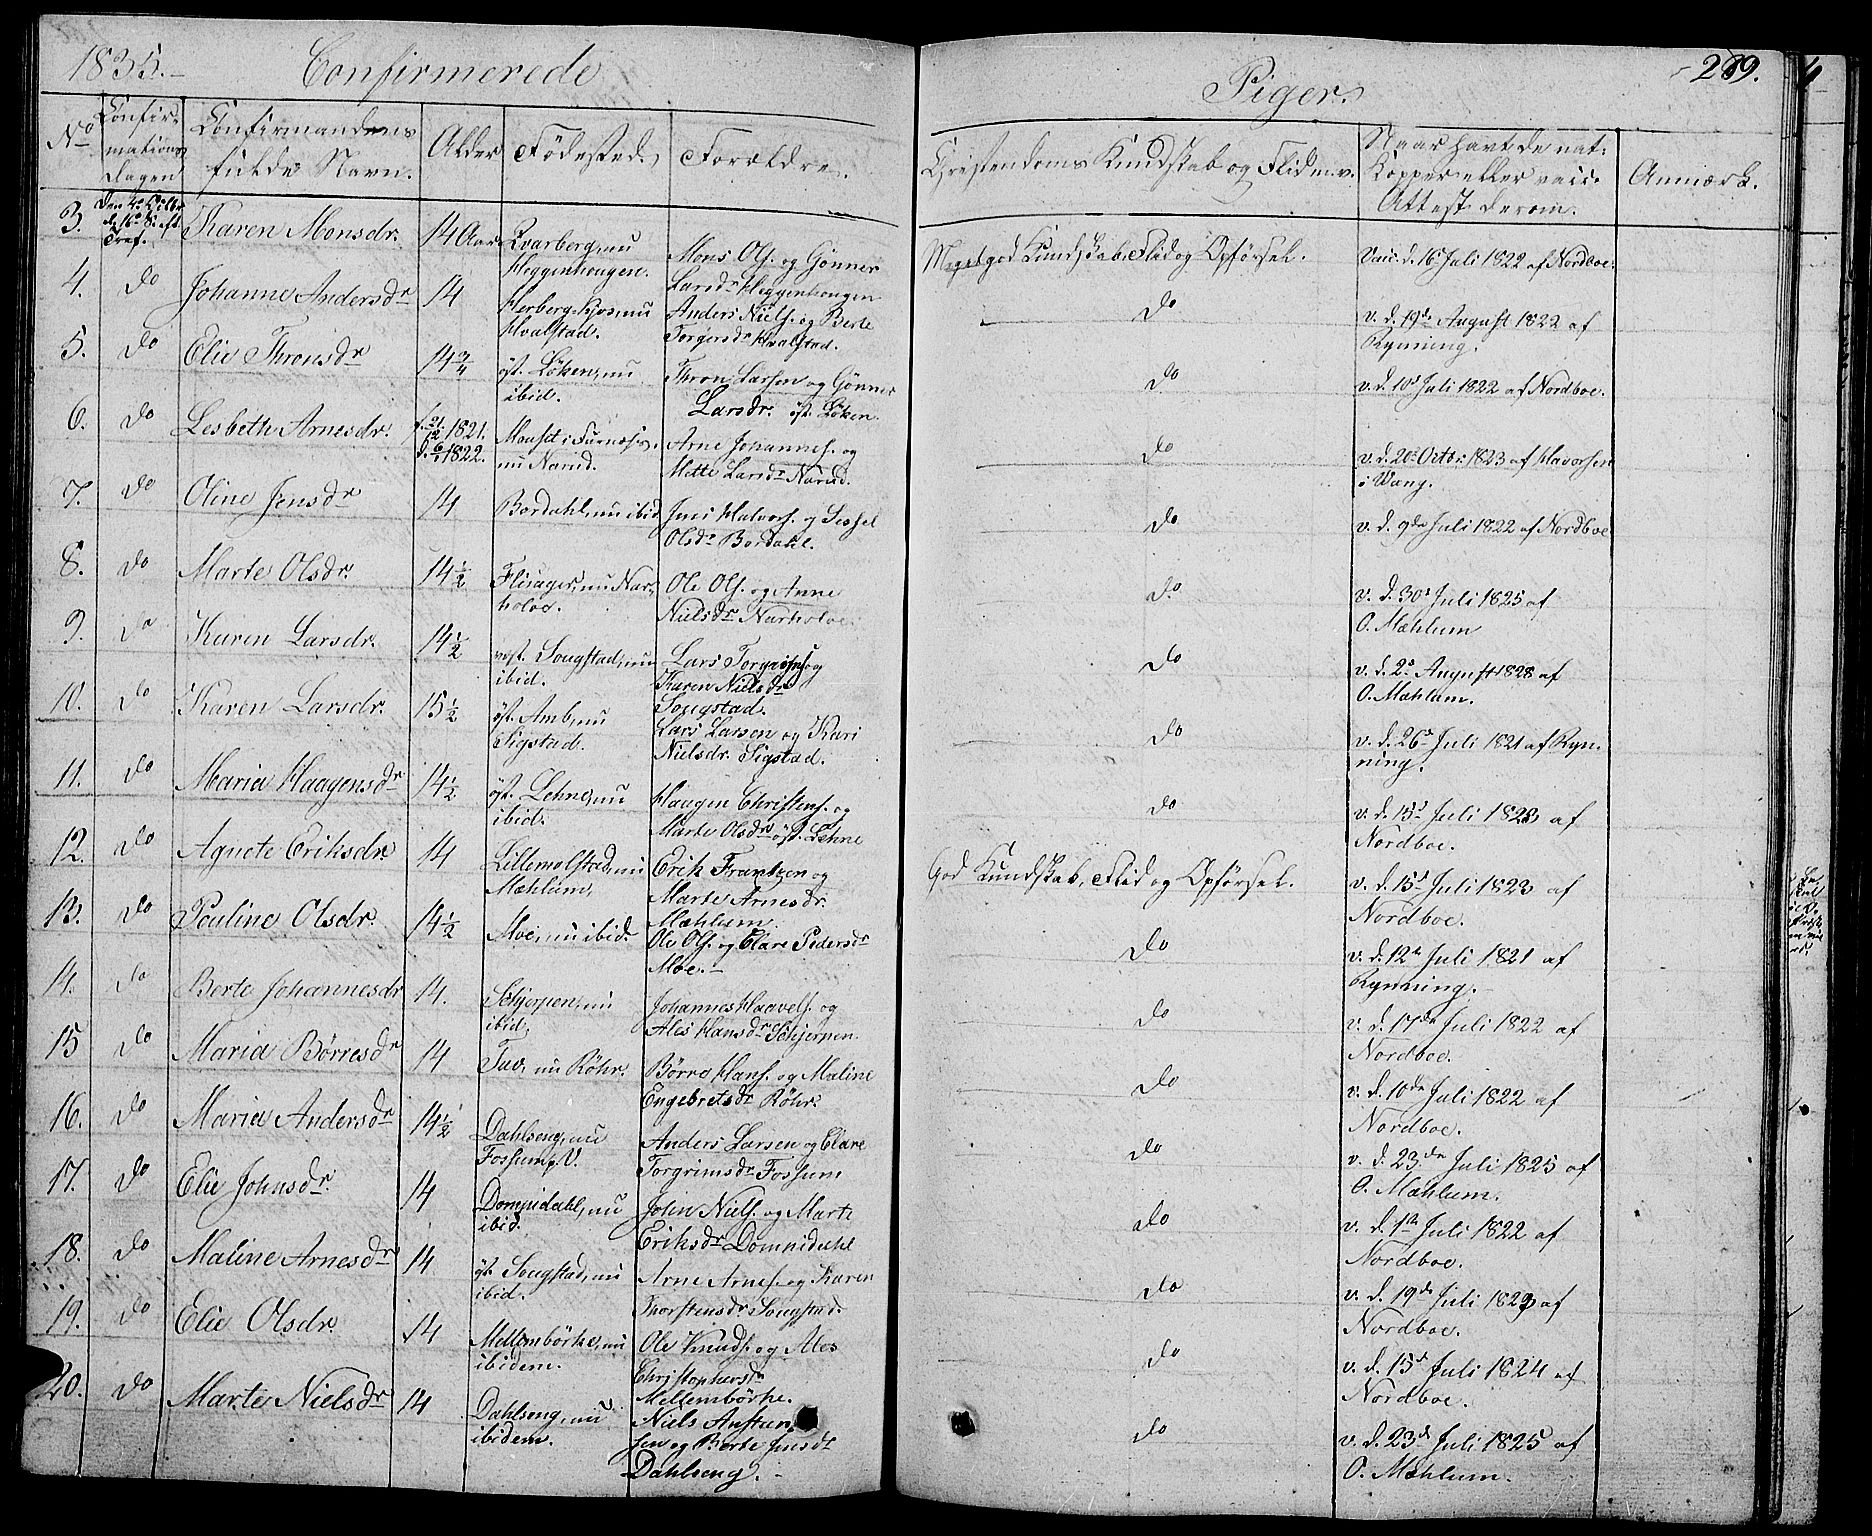 1835.
Confirmerede
Piger.
289.
No
Confir-
mations
Dagen
Confirmandens
fulde Navn.
Alder
Födested.
Forældre.
Christendoms Kundskab og Flid m.v.
Naar havt de nat:
Kopper eller vacc.
Attest derom.
Anmærk.
3.
Karen Monsdr.
14 Aar
Kvarberg, nu
Heggenhougen.
Mons Ols. og Gönner
Larsdr Heggenhougen
Meget god Kundskab, Flid og Opförsel.
Vacc. d. 16 Juli 1822 af Nordboe.
4.
do
Johanne Andersdr
14
nu
Hvalstad.
Anders Niels. og Berte
Torgersdr Hvalstad.
do
v. d. 19de August 1822 af
Rynning.
5.
do
Elie Thronsdr
14 3/4
öst. Löken, nu
ibid.
Thron Larsen og Gönner
Larsdr. öst. Löken.
do
v. d. 10d Juli 1822 af Nordboe.
6.
do
Lesbeth Arnesdr.
1821.
1822.
i Furnæs,
nu Narud.
Arne Johannes. og
Mette Larsdr Narud.
do
v. d. 20d Octbr. 1823 af Havorsen
i Wang.
7.
do
Oline Jensdr
14
Bordahl, nu ibid
Jens Halvors. og Sessel
Olsdr Bordahl.
do
v. d. 9de Juli 1822 af Nordboe
8.
do
Marte Olsdr.
14 1/2
Flisager, nu Nar-
holoe.
Ole Ols. og Anne
Nielsdr Narholoe.
do.
v. d. 30d Juli 1825 af
O. Mæhlum
9.
do
Karen Larsdr.
14 1/2
vest. Sougstad, nu
ibid.
Lars Torgers. og
Karen Nielsdr
Sougstad.
do
v. d. 2d August 1828 af
O. Mæhlum.
10.
do
Karen Larsdr.
15 1/2
öst. Amb, nu
Sigstad.
Lars Larsen og Kari
Nielsdr. Sigstad.
do
v. d. 26d Juli 1821 af Ryn-
ning.
11.
do
Maria Haagensdr
14 1/2
öst. Lehne, nu
ibid.
Haagen Christens. og
Marte Olsdr öst. Lehne
do
v. d. 15d Juli 1823 af
Nordboe.
12.
do
Agnete Eriksdr
14
Lillemolstad, nu
Mæhlum.
Erik Frantzen og
Marte Arnesdr.
Mæhlum.
God Kundskab, Flid og Opförsel.
v. d. 15d Juli 1823 af
Nordboe.
13.
do
Pouline Olsdr.
14 1/2
Moe, nu ibid.
Ole Ols. og Clare Pedersdr
Moe.
do
v. d. 12te Juli 1821 af
Rynning.
14.
do
Berte Johannesdr
14.
Schjerpen, nu
ibid.
Johannes Haavels. og
Ales Hansdr Schjerpen.
do
v. d. 17de Juli 1822 af
Nordboe.
15
do
Maria Börresdr
14
nu Röhr.
Börre Hans. og Maline
Engebretsdr Röhr.
do
v. d. 10de Juli 1822 af
Nordboe.
16.
do
Maria Andersdr
14 1/2
Dahlseng, nu
Fossum p. V.
Anders Larsen og Clare
Torgrimsdr Fossum
do
v. d. 23de Juli 1825 af
O. Mæhlum.
17.
do
Elie Johnsdr.
14
Dompidahl, nu
ibid.
John Niels. og Marte
Eriksdr Dompidahl
do
v. d. 1te Juli 1822 af
Nordboe.
18.
do
Maline Arnesdr
14
öst. Sougstad, nu
ibid.
Arne Arnes. og Karen
Thorstensdr Sougstad.
do
v. d. 19de Juli 1823 af
Nordboe.
19.
do
Elie Olsdr.
14
Mellembörke, nu
ibidem.
Ole Knuds. og Ales
Christophersdr
Mellembörke.
do
v. d. 15d Juli 1824 af
Nordboe.
20.
do
Marte Nielsdr
14
Dahlseng, nu
ibidem.
Niels Austen
sen og Berte Jensdr
Dahlseng.
do
v. d. 23d Juli 1825 af
O. Mæhlum.